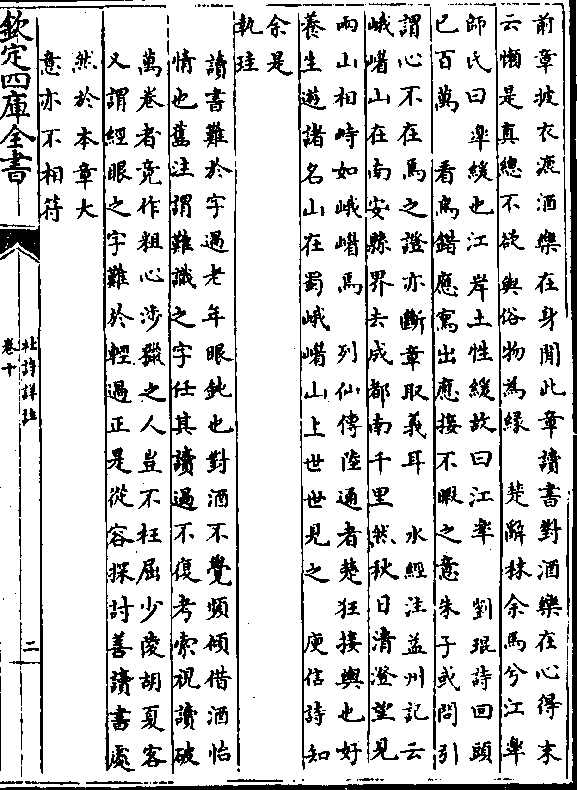 前章披衣漉酒樂在身閒此章讀書對酒樂在心得末
云懶是真總不欲與俗物為緣　楚辭秣余馬兮江臯
師氏曰臯緩也江岸土性緩故曰江臯　劉琨詩回頭
已百萬　看鳥錯應寫出應接不暇之意朱子或問引
謂心不在焉之證亦斷章取義耳　水經注益州記云
峨嵋山在南安縣界去成都南千里然秋日清澄望見
兩山相峙如峨嵋焉　列仙傳陸通者楚狂接輿也好
養生遊諸名山在蜀峨嵋山上世世見之　庾信詩知
余是
執珪
讀書難於字過老年眼鈍也對酒不覺頻傾借酒怡
情也舊注謂難識之字任其讀過不復考索視讀破
萬卷者竟作粗心涉獵之人豈不枉屈少陵胡夏客
又謂經眼之字難於輕過正是從容探討善讀書處
然於本章大
意亦不相符
欽定四庫全書
杜詩詳註
卷十
二